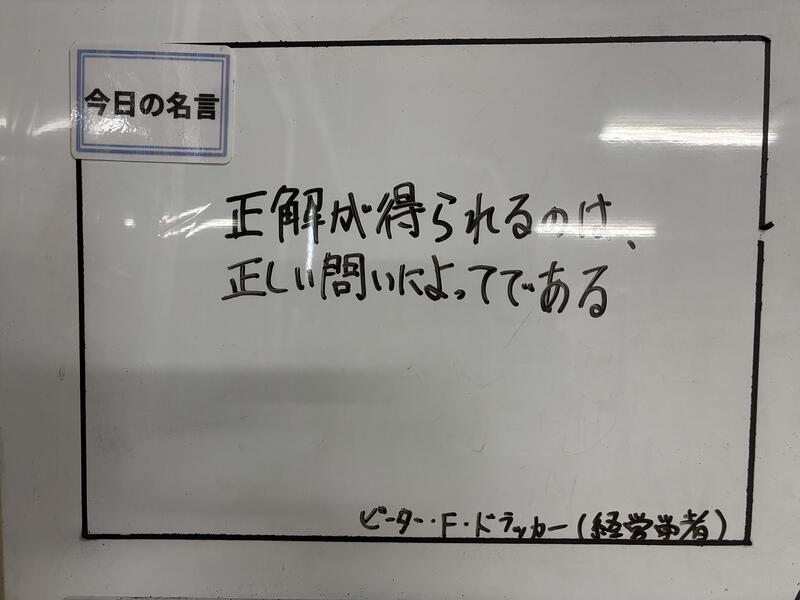 今日の名言
正解が得られるのは、
正しい問いによってである
ピーター・F・ドラッカー(経営学者)